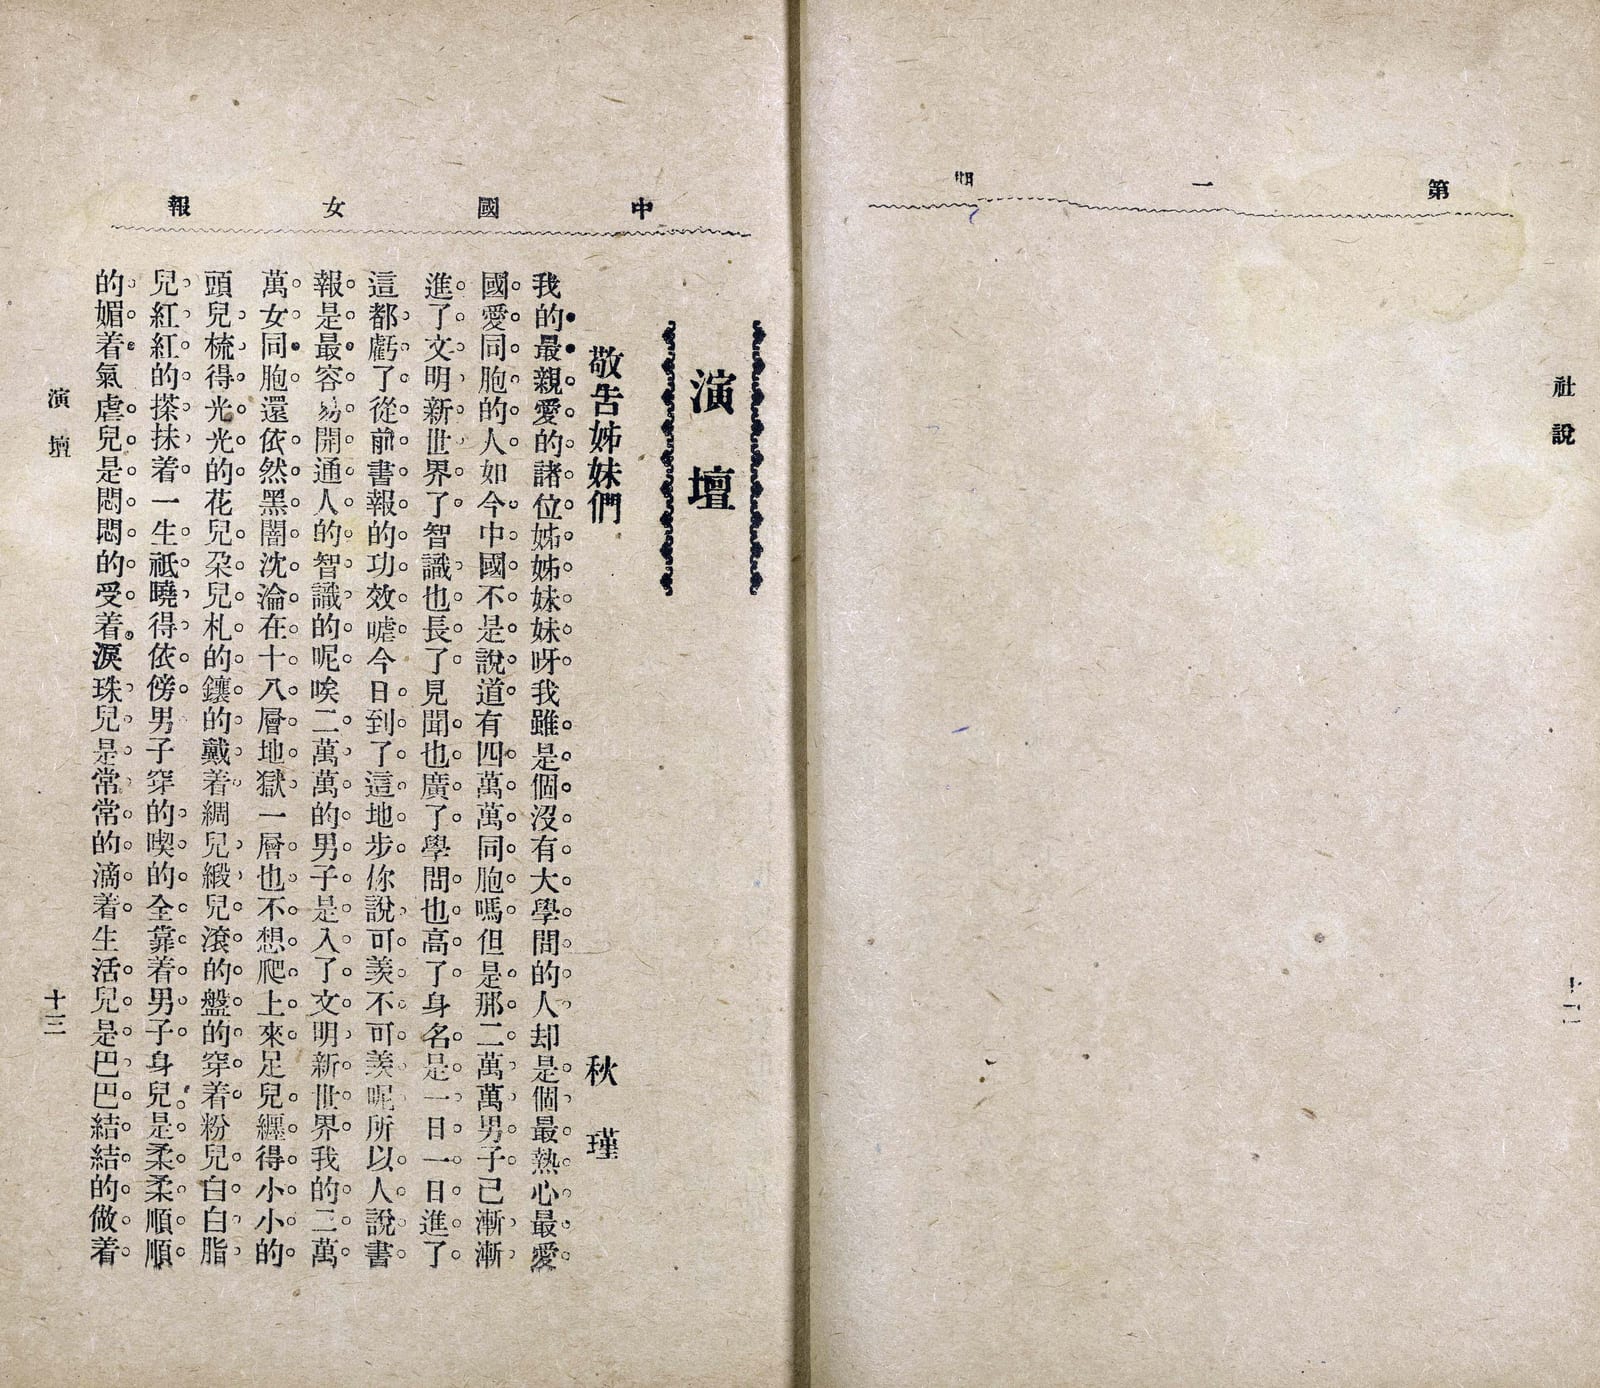 社說
第一期
十二
中國女報
演壇
敬告姊妹們
秋瑾
我的最親愛的諸位姊姊妹妹呀我雖是個沒有大學問的人却是個最熱心最愛
國愛同胞的人如今中國不是說道有四萬萬同胞嗎但是那二萬萬男子已漸漸
進了文明新世界了智識也長了見聞也廣了學問也高了身名是一日一日進了
這都虧了從前書報的功效嘑今日到了這地步你說可羨不可羨呢所以人說書
報是最容易開通人的智識的呢唉二萬萬的男子是入了文明新世界我的二萬
萬女同胞還依然黑闇沈淪在十八層地獄一層也不想爬上來足兒纏得小小的
頭兒梳得光光的花兒朶兒札的鑲的戴着綢兒緞兒滾的盤的穿着粉兒白白脂
兒紅紅的搽抹着一生祗曉得依傍男子穿的喫的全靠着男子身兒是柔柔順順
的媚着氣虐兒是悶悶的受着淚珠兒是常常的滴着生活兒是巴巴結結的做着
演壇
十三